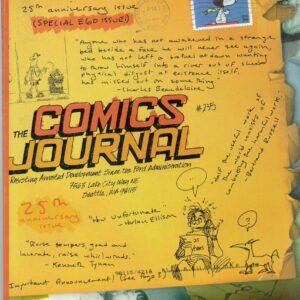 25th anniversary
issue
(SPECIAL EGO ISSUE!)
"Anyone who has not awakened in a strange
bed beside a face he will never see again,
who has not left a brothel at dawn wanting
to throw himself into a river out of sheer
physical disgust at existence itself,
has missed out on something"
-Charles Beaudelaire
#235
THE
COMICS
JOURNAL
Resisting Arrested Development Since the Ford Administration
7563 Lake City Way NE
Seattle, WA 98115
25th
anniversary
issue
"How Unfortunate."
-Harlan Ellison
"Raise tempers, goad and
lacerate, raise whirlwinds."
- Kenneth Tynan
"Half the useful work
in the world consists of
combatting the harmful
Bertrand Russell
Important Announcement! (see Page 3)